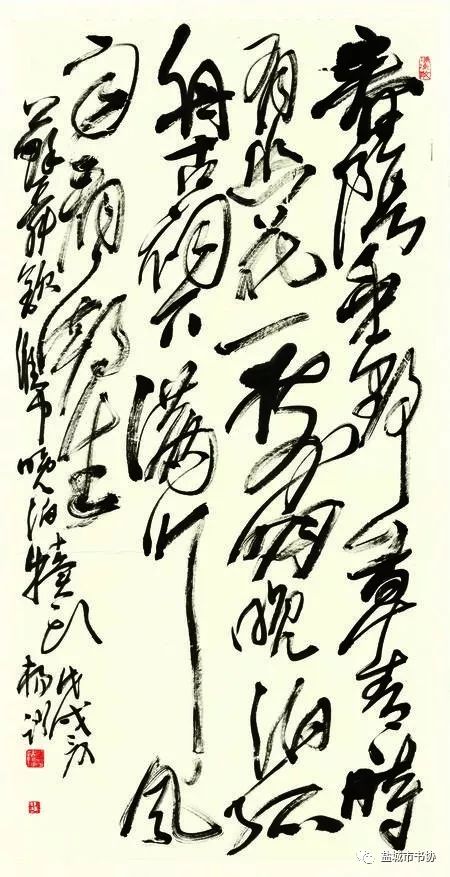 春陰垂野草青青時
有幽花一树明晚泊孤
舟古祠下滿川風
雨看潮生
蘇舜欽淮中晚泊犢头
戊戌
杨
盐城市书协